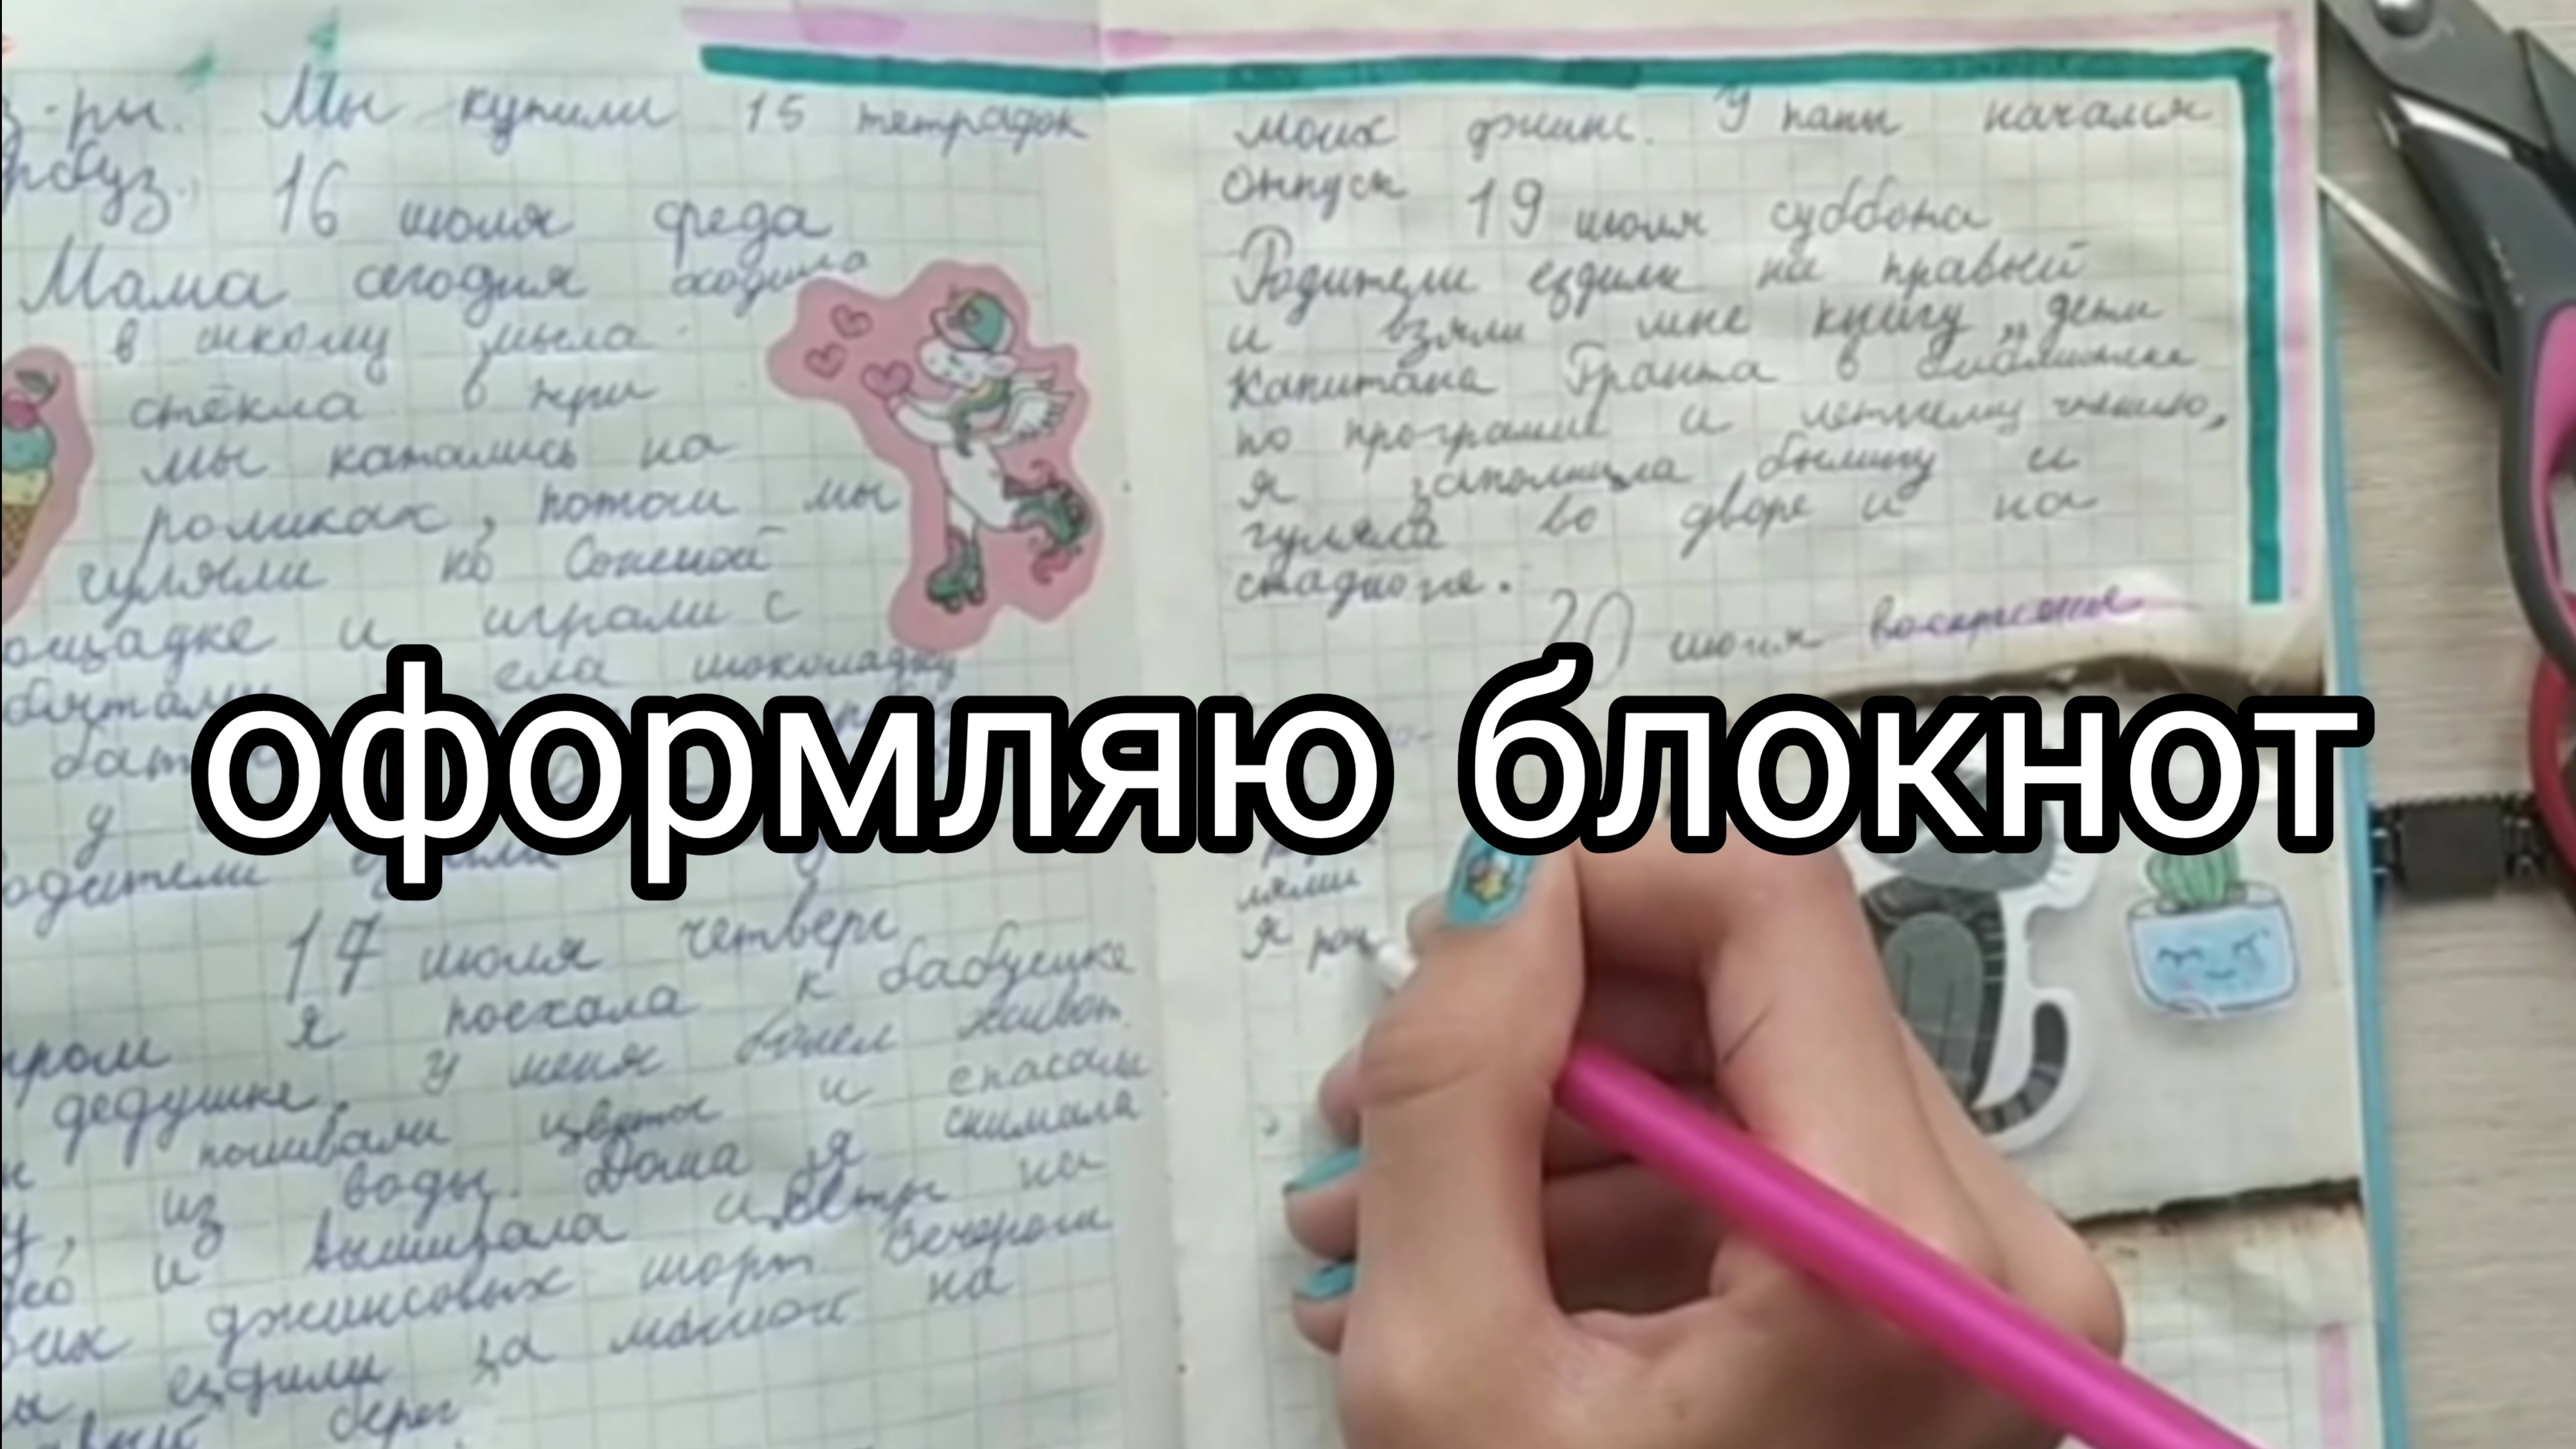 з-ры. Мы купили 15 тетрадок
арбуз. 16 июля среда
Мама сегодня ходила
в школу мыла
стёкла в три
мы катались на
роликах, потом мы
гуляли ко Сониной
ощадке и играли с
ела шоколадку
бат
у
одители ездили
17 июля четверг
тром я поехала к бабушке
дедушке. У меня болел живот.
поливали цветы и спасали
из воды. Дома я снимала
и вышивала на
джинсовых шорт. Вечером
ездили за мамой на
берег
моих джинс. У папы начался
отпуск 19 июля суббота
Родители ездили на правый
и взяли мне книгу „дети
капитана Гранта в библиотеке
по програме и летнему чтению,
я заполнила былину и
гуляла во дворе и на
стадионе.
20 июля воскресенье
оформляю блокнот
я